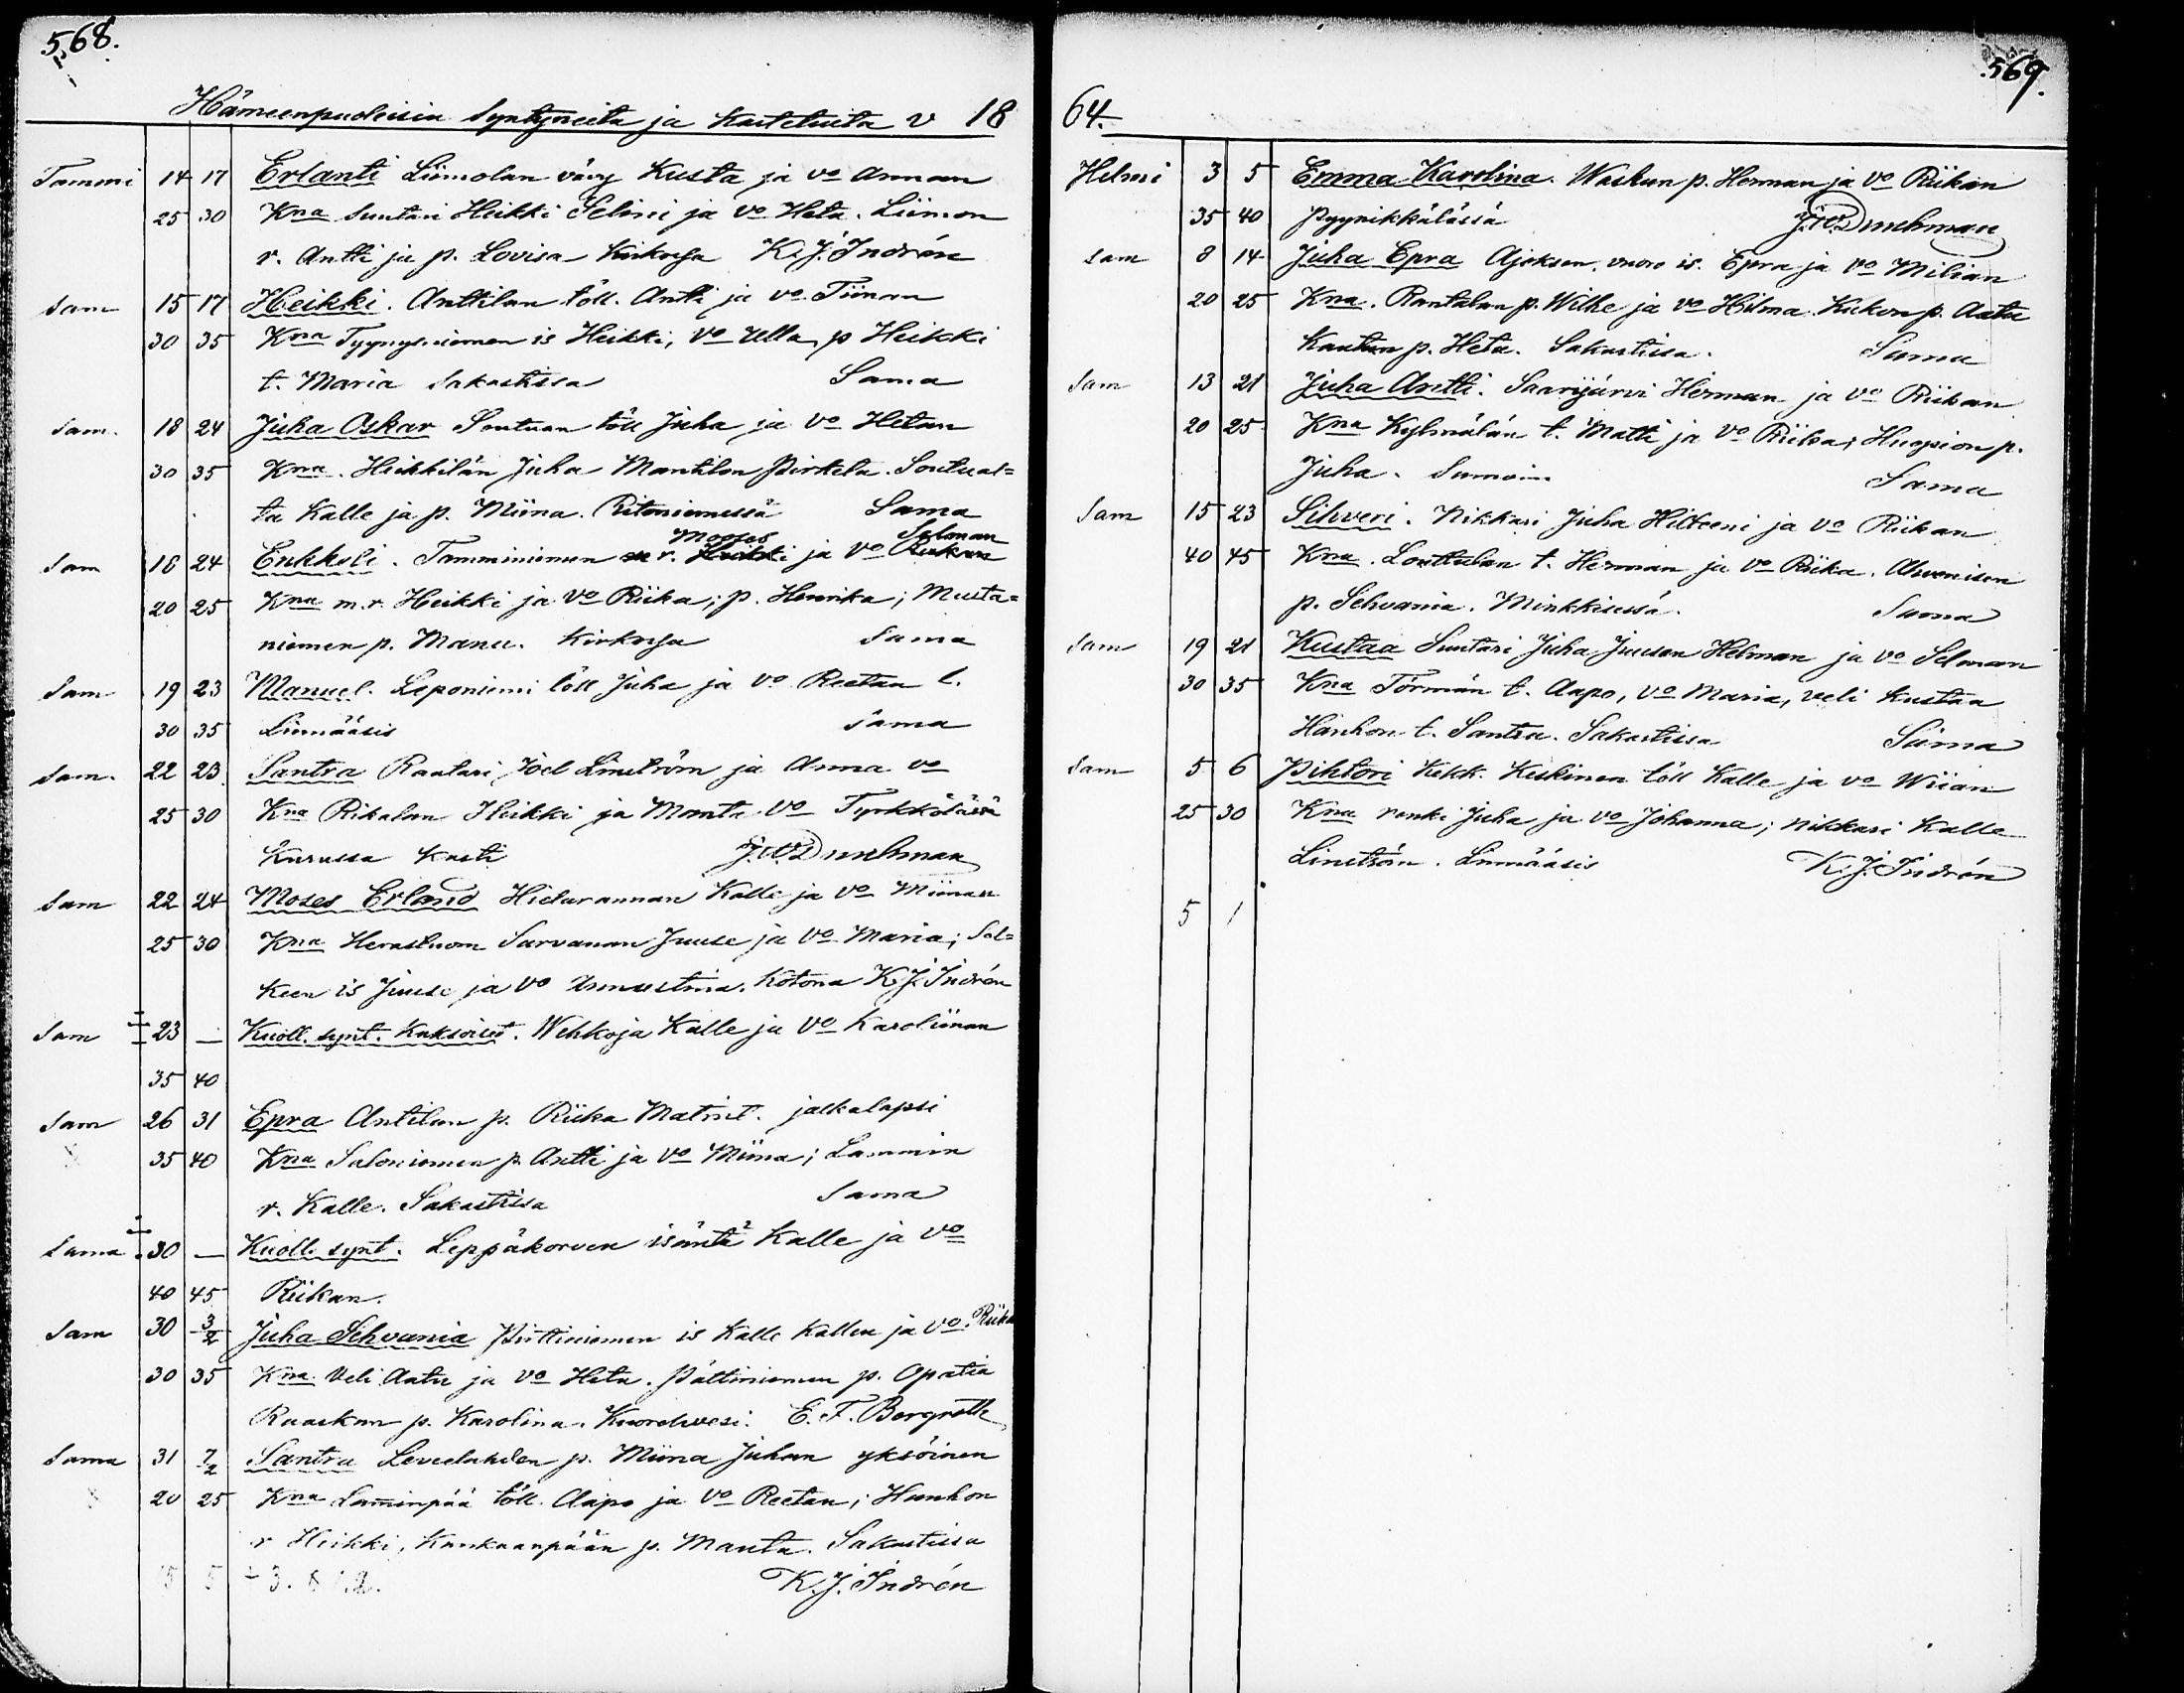 568.
Hämeenpuoleisia Syntyneitä ja Kastetuita v 18
Tammi 14 17 Erlanti Liimolan vävy Kusta ja vo Annan
25 30 Kna Suutari Heikki Selini ja vo Heta. Liimon
r. Antti ja p. Lovisa Kirkolla K. J. Indrén
Sam 15 17 Heikki. Anttilan töll. Antti ja vo Tiinan
30 35 Kna Tyynysniemen is Heikki, vo Ulla, p Heikki
t. Maria Sakastissa Sama
Sam. 18 24 Juha Oskar Soutuan töll Juha ja vo Hetan
30 35 Kna. Heikkilän Juha Mantilan Pirkela. Soutual=
ta Kalle ja p. Miina. Ritoniemessä Sama
Mooses Selman
Sam 18 24 Enkkeli. Tamminiemen r. Heikki ja vo Riikan
20 25 Kna m.r. Heikki ja vo Riika; p. Henrika; Musta=
niemen p. Manu. Kirkolla Sama
Sam 19 23 Manuel. Leponiemi töll Juha ja vo Reetan l.
30 35 Linnääsis Sama
Sam. 22 23 Santra Raatari Joel Linström ja Anna vo
25 30 Kna Rikalan Heikki ja Manta vo Tyrkkölässä
Kurussa Kasti J. W. Durchman
Sam 22 24 Moses Erland Hieturannan Kalle ja vo Miinan
25 30 Kna Herastuom Sarvanan Juuse ja vo Maria; Sel=
keen is Juuse ja vo Annastina. Kotona K. J. Indrén
Sam 23 — Kuoll. synt. Kaksoiset. Wehkoja Kalle ja vo Karoliinan
35 40
Sam 26 31 Epra Antilan p. Riika Matint. jalkalapsi
35 40 Kna Saloniemen p. Antti ja vo Miina; Lammin
r. Kalle. Sakastissa Sama
Sama 30 — Kuoll. synt. Leppäkorven isäntä Kalle ja vo
40 45 Riikan.
Sam 30 3/2 Juha Sehvania Pirttiniemen is Kalle Kallen ja vo. Riika
30 35 Kna Veli Aatu ja vo Heta. Pättiniemen p. Opatia
Raaskan p. Karolina. Kuorelwesi. E. F. Bergroth
Sama 31 7/2 Santra Leveelahden p. Miina Juhan yksöinen
20 25 Kna Lamminpää töll. Aapo ja vo Reetan; Hunhon
r Heikki, Kankaanpään p. Manta. Sakastissa
K. J. Indrén
569.
64.
Helmi 3 5 Emma Karolina. Waskun p. Herman ja vo Riikan
35 40 Pyynikkälässä J. W. Durchman
Sam 8 14 Juha Epra Ajoksen. vuoro is. Epra ja vo Milian
20 25 Kna. Rantalan p. Wilhe ja vo Hilma. Kukon p. Aatu
Kantan p. Heta. Sakastissa. Sama
Sam 13 21 Juha Antti. Saarijärvi Herman ja vo Riikan
20 25 Kna Kylmälän t. Matti ja vo Riika; Huopion p.
Juha. Samoin Sama
Sam 15 23 Sihveri. Nikkari Juha Hilteeni ja vo Riikan
40 45 Kna. Louttulan t. Herman ja vo Riika. Ahvenisen
p. Sehvania. Minkkisessä. Sama
Sam 19 21 Kustaa Suutari Juha Juusan Helman ja vo Selman
30 35 Kna Törmän t. Aapo, vo Maria, veli Kustaa
Hanhon t. Santra. Sakastissa Sama
Sam 5 6 Pihtori Kekk. Keskinen töll Kalle ja vo Wiian
25 30 Kna renki Juha ja vo Johanna; nikkari Kalle
Linström. Linnääsis K. J. Indrén
5 1